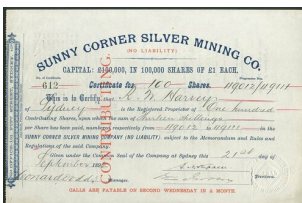 SUNNY CORNER SILVER MINING Co.
(NO LIABILITY)
CAPITAL: £100,000, IN 100,000 SHARES OF £1 EACH.
No. of Certificate
612 Certificate for 100 Shares.
This is to Certify that Harvey
of Sydney is the Registered Proprietor of One hundred
Contributing Shares, upon which the sum of shillings
per Share has been paid, numbered respectively from to in the
SUNNY CORNER SILVER MINING COMPANY (NO LIABILITY) subject to the Memorandum and Rules and
Regulations of the said Company.
Given under the Common Seal of the Company at Sydney this 21st day of
September
Manager.
CALLS ARE PAYABLE ON SECOND WEDNESDAY IN A MONTH.
CONTRIBUTING